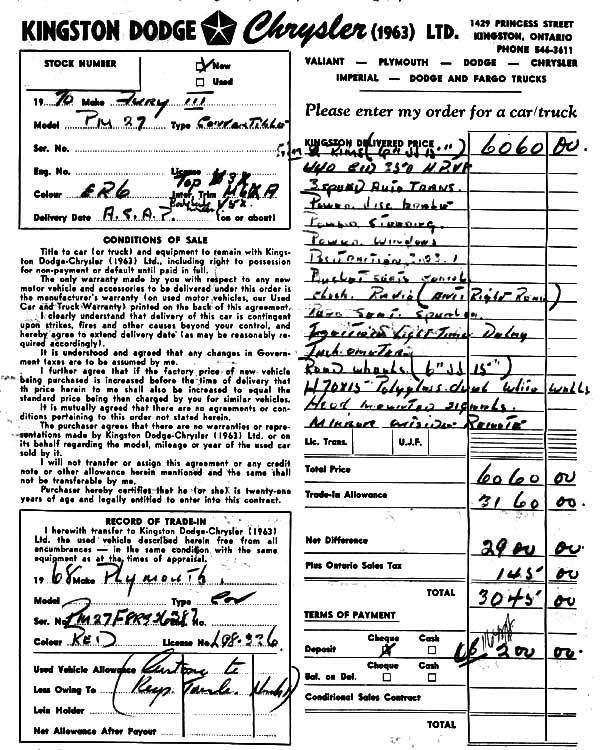 KINGSTON DODGE Chrysler (1963) LTD.
1429 PRINCESS STREET
KINGSTON, ONTARIO
PHONE 546-3611
VALIANT — PLYMOUTH — DODGE — CHRYSLER
IMPERIAL — DODGE AND FARGO TRUCKS
Please enter my order for a car/truck
STOCK NUMBER
New
Used
19 70 Make Fury III
Model PM 27 Type Convertible
Ser. No.
Eng. No. License
Colour ER6 Top V3X Inter. Trim H6XA
Delivery Date A.S.A.P. V5X (on or about)
CONDITIONS OF SALE
Title to car (or truck) and equipment to remain with Kings-
ton Dodge-Chrysler (1963) Ltd., including right to possession
for non-payment or default until paid in full.
The only warranty made by you with respect to any new
motor vehicle and accessories to be delivered under this order is
the manufacturer's warranty (on used motor vehicles, our Used
Car and Truck Warranty) printed on the back of this agreement.
I clearly understand that delivery of this car is contingent
upon strikes, fires and other causes beyond your control, and
hereby agree to extend delivery date (as may be reasonably re-
quired accordingly).
It is understood and agreed that any changes in Govern-
ment taxes are to be assumed by me.
I further agree that if the factory price of new vehicle
being purchased is increased before the time of delivery that
the price herein to me shall also be increased to equal the
standard price being then charged by you for similar vehicles.
It is mutually agreed that there are no agreements or con-
ditions pertaining to this order not stated herein.
The purchaser agrees that there are no warranties or repre-
sentations made by Kingston Dodge-Chrysler (1963) Ltd. or on
its behalf regarding the model, mileage or year of the used car
sold by it.
I will not transfer or assign this agreement or any credit
note or other allowance herein mentioned and the same shall
not be transferable by me.
Purchaser hereby certifies that he (or she) is twenty-one
years of age and legally entitled to enter into this contract.
RECORD OF TRADE-IN
I herewith transfer to Kingston Dodge-Chrysler (1963)
Ltd. the used vehicle described herein free from all
encumbrances — in the same condition with the same
equipment as at the times of appraisal.
19 68 Make Plymouth
Model Type Con
Ser. No. PM27F8R936287 No.
Colour RED License No. L98-326
Used Vehicle Allowance Customer to
Less Owing To (Keep Tach.
Lein Holder
Net Allowance After Payout
KINGSTON DELIVERED PRICE 6060 00
Rims (6" JJ 15")
440 350 H.P. V8
3 speed Auto Trans.
Power disc brakes
Power Steering.
Power Windows
Bucket seats console
Radio (Ant Right Rear)
Rear Seat Speaker
Ignition Light Time Delay
Tachometer
Road wheels (6" JJ 15")
H70X15 Polyglass dual white walls
Hood mounted signals.
Mirror outside Remote
Lic. Trans. U.J.F.
Total Price 6060 00
Trade-In Allowance 3160 00
Net Difference 2900 00
Plus Ontario Sales Tax 145 00
TOTAL 3045 00
TERMS OF PAYMENT
Cheque Cash
Deposit 200 00
Cheque Cash
Bal. on Del.
Conditional Sales Contract
TOTAL